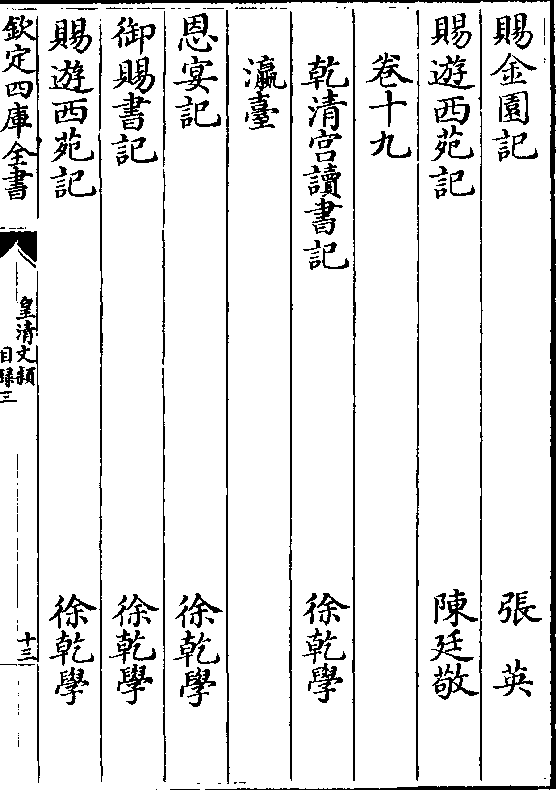 賜金園記 張英
賜遊西苑記 陳廷敬
卷十九
乾清宮讀書記 徐乾學
瀛臺
恩宴記 徐乾學
御賜書記 徐乾學
賜遊西苑記 徐乾學
欽定四庫全書 皇清文穎 目録三 十三